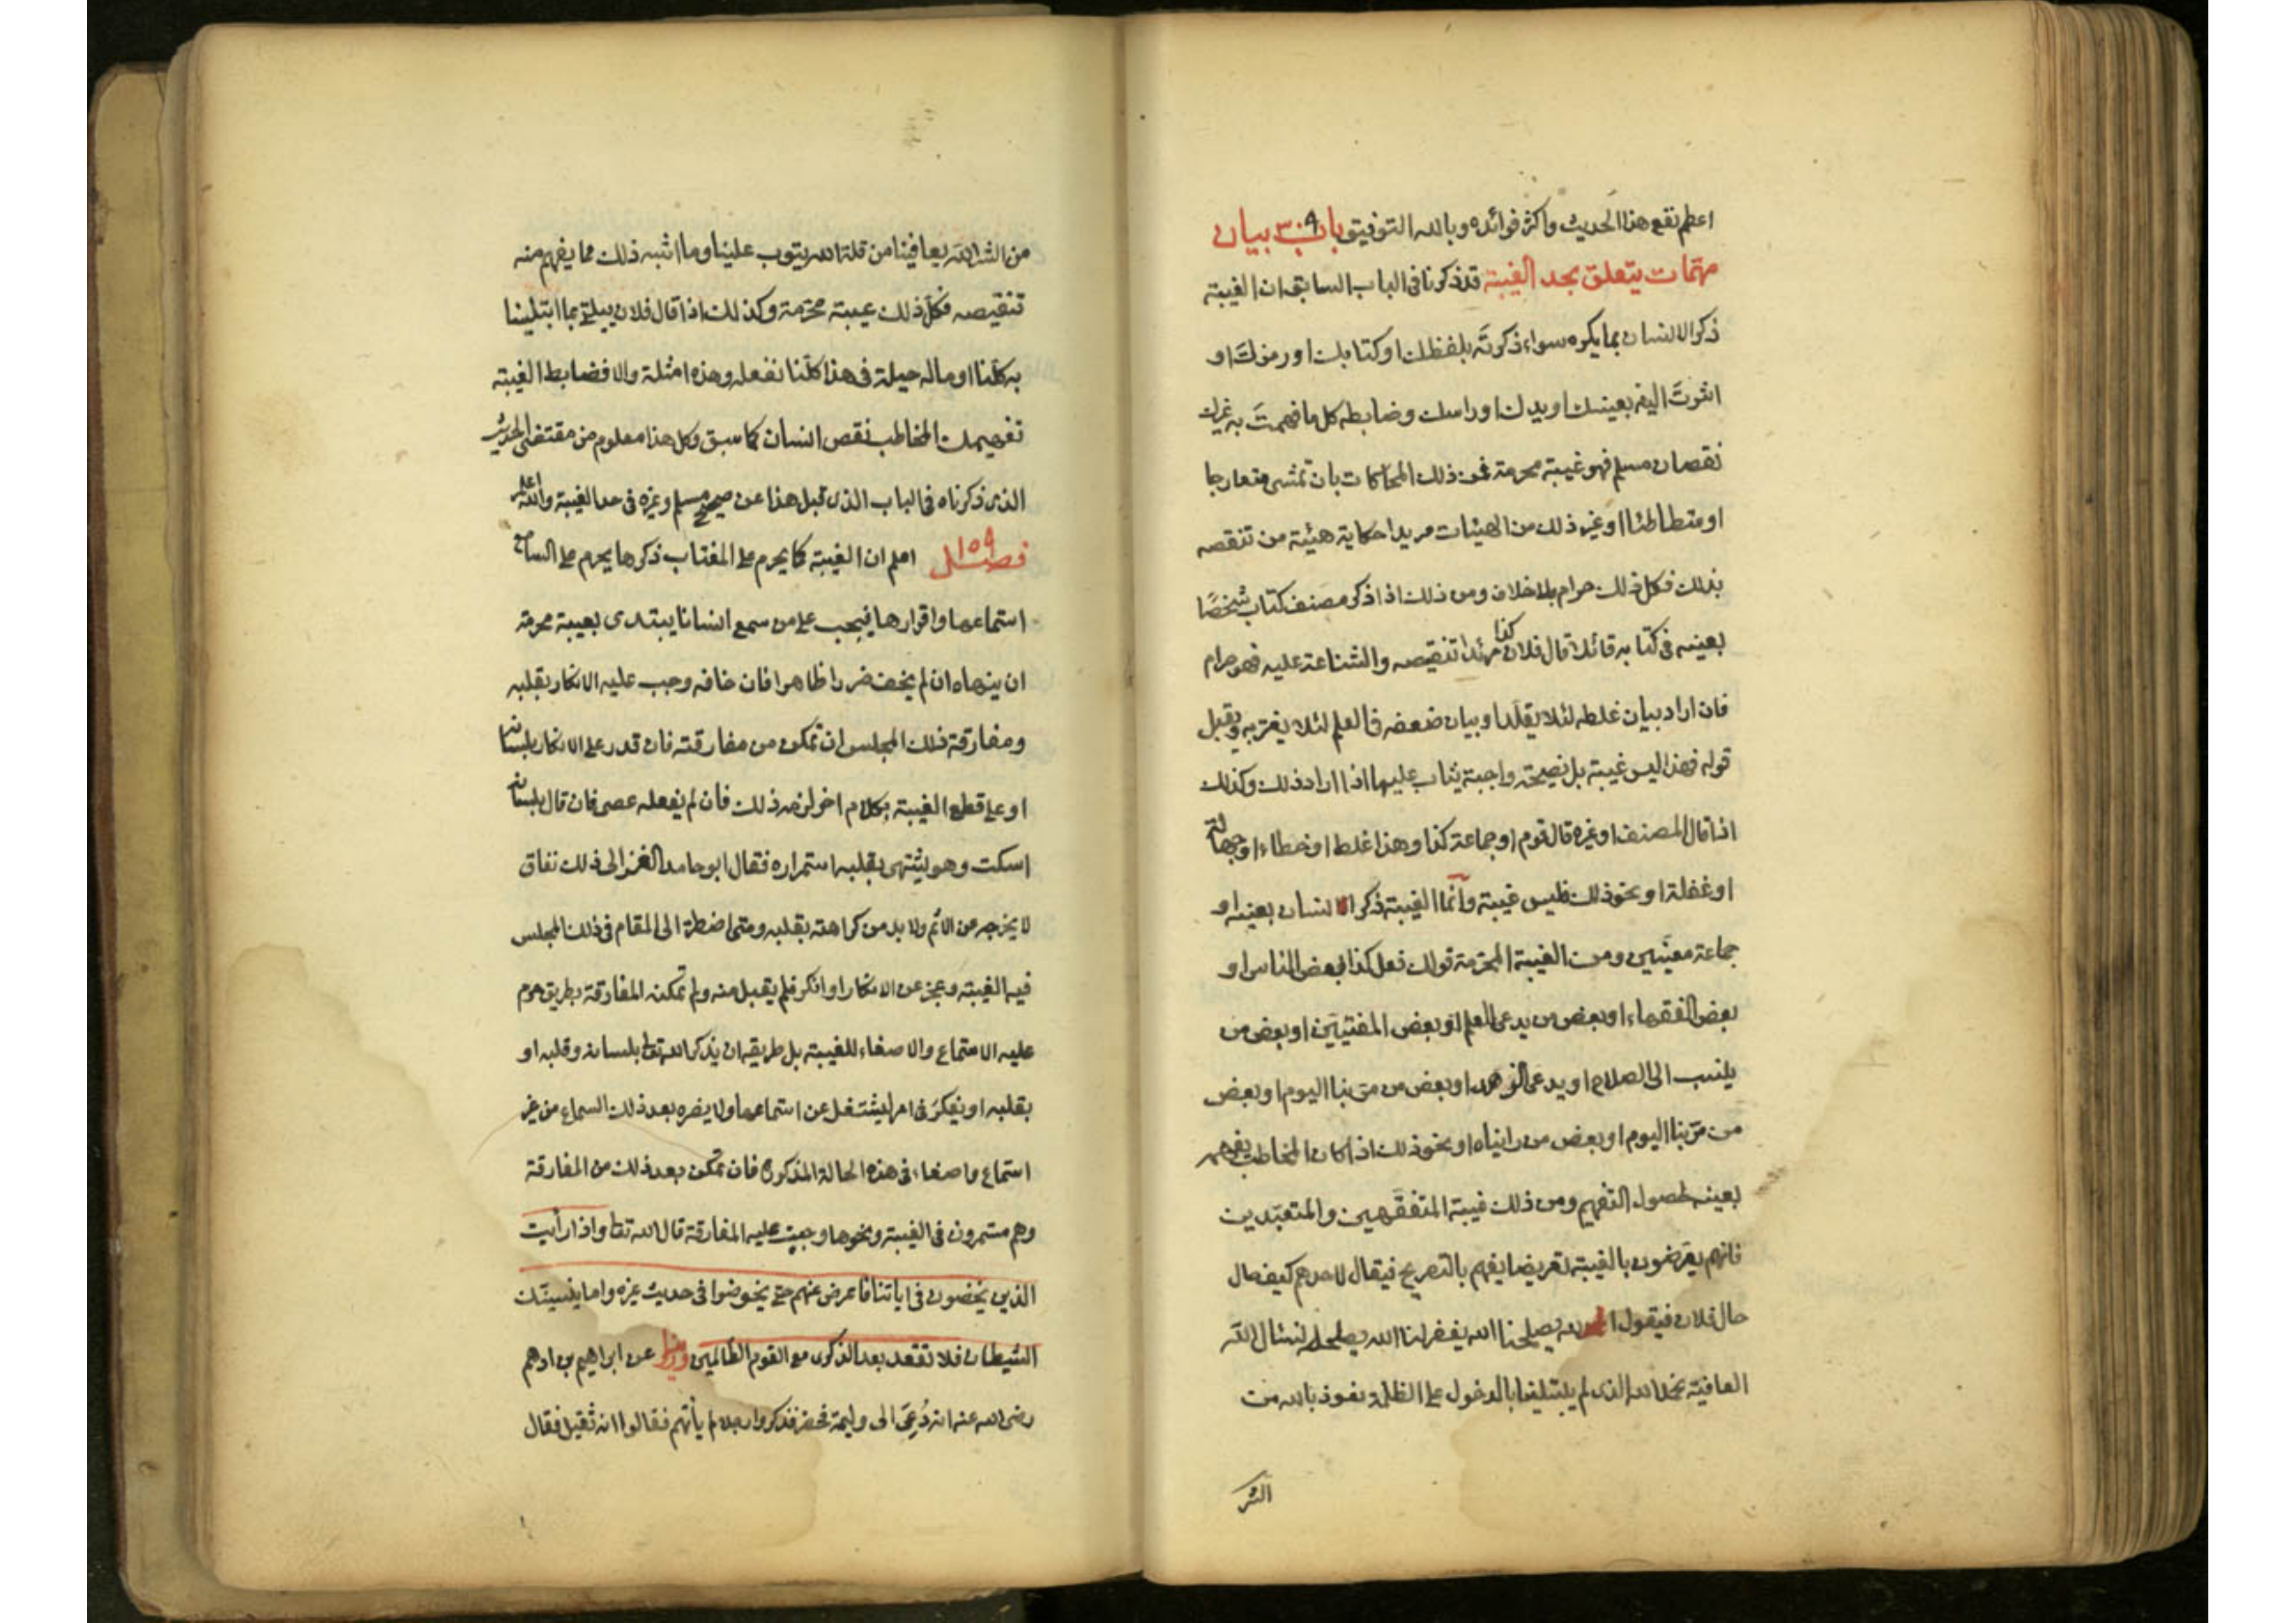 اعظم نفع هذا الحديث واكثر فوائده وبالله التوفيق باب ٣٠٩ بيان
مهمّات يتعلق بحد الغيبة قد ذكرنا فى الباب السابق ان الغيبة
ذكر الانسان بما يكره سواء ذكرتَه بلفظك او كتابك او رمزتَ او
اشرتَ اليه بعينك او يدك او راسك وضابطه كل ما فهمتَ به غيرك
نقصان مسلم فهو غيبة محرمة فمن ذلك المحاكات بان تمشى متعارجا
او متطاطئا او غير ذلك من الهيئات مريدا حكاية هيئة من تنقصه
بذلك فكل ذلك حرام بلا خلاف ومن ذلك اذا ذكر مصنف كتاب شخصًا
بعينه فى كتابه قائلا قال فلان كذا مريدا تنقيصه والشناعة عليه فهو حرام
فان اراد بيان غلطه لئلا يقلّد او بيان ضعفه فى العلم لئلا يغتر به ويقبل
قوله فهذا ليس غيبة بل نصيحة واجبة يثاب عليها اذا اراد ذلك وكذلك
اذا قال المصنف او غيره قال قوم او جماعة كذا وهذا غلط او خطاء او جهالة
او غفلة او نحو ذلك فليس غيبة وانّما الغيبة ذكر الانسان بعينه او
جماعة معيّنين ومن الغيبة المحرّمة قولك فعل كذا بعض الناس او
بعض الفقهاء او بعض من يدعى العلم او بعض المفتيين او بعض من
ينسب الى الصلاح او يدعى الزهد او بعض من مرّ بنا اليوم او بعض
من مرّ بنا اليوم او بعض من رايناه او نحو ذلك اذا كان المخاطب يفهمه
بعينه لحصول التفهيم ومن ذلك غيبة المتفقّهين والمتعبّدين
فانهم يعرّضون بالغيبة تعريضا يفهم بالتصريح فيقال لاحدهم كيف حال
حال فلان فيقول الله يصلحنا الله يغفر لنا الله يصلحه نسئال الله
العافية نحمد الله الذى لم يبتلينا بالدخول على الظلمة ونعوذ بالله من
الشر
من الشر الله يعافينا من قلة الله يتوب علينا وما اشبه ذلك مما يفهم منه
تنقيصه فكلّ ذلك غيبة محرّمة وكذلك اذا قال فلان يبتلى بما ابتلينا
به كلّنا او ماله حيلة فى هذا كلّنا نفعله وهذه امثلة والا فضابط الغيبة
تفهيمك المخاطب نقص انسان كما سبق وكل هذا معلوم من مقتضى الحديث
الذى ذكرناه فى الباب الذى قبل هذا عن صحيح مسلم وغيره فى حد الغيبة والله اعلم
فصل ١٥٩ اعلم ان الغيبة كما يحرم على المغتاب ذكرها يحرم على السامع
استماعها واقرارها فيجب على من سمع انسانا يبتدى بغيبة محرمة
ان ينهاه ان لم يخف ضررا ظاهرا فان خافه وجب عليه الانكار بقلبه
ومفارقة ذلك المجلس ان تمكن من مفارقته فان قدر على الانكار بلسانه
او على قطع الغيبة بكلام اخر لزمه ذلك فان لم يفعله عصى فان قال بلسانه
اسكت وهو يشتهى بقلبه استمراره فقال ابو حامد الغزالى ذلك نفاق
لا يخرجه عن الاثم ولا بد من كراهته بقلبه ومتى اضطر الى المقام فى ذلك المجلس
فيه الغيبة وعجز عن الانكار او انكر فلم يقبل منه ولم تمكنه المفارقة بطريق حرم
عليه الاستماع والاصغاء للغيبة بل طريقه ان يذكر الله تعالى بلسانه وقلبه او
بقلبه او يفكرَ فى امر ليشتغل عن استماعها ولا يضره بعد ذلك السماع من غير
استماع واصغاء فى هذه الحالة المذكورة فان تمكن بعد ذلك من المفارقة
وهم مستمرون فى الغيبة ونحوها وجبت عليه المفارقة قال الله تعالى واذا رأيت
الذين يخضون فى اياتنا فاعرض عنهم حتى يخوضوا فى حديث غيره واما ينسينّك
الشيطان فلا تقعد بعد الذكرى مع القوم الظالمين وروينا عن ابراهيم بن ادهم
رضى الله عنه انه دُعِىَ الى وليمة فحضر فذكروا رجلا لم يأتهم فقالوا انه ثقيل فقال